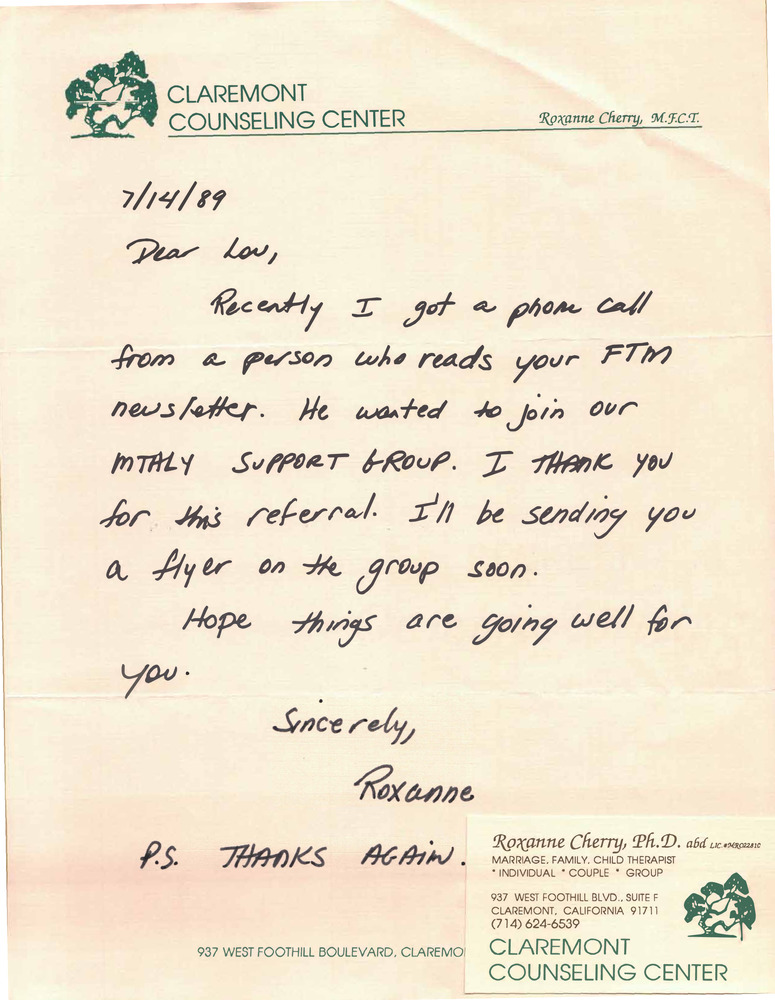 CLAREMONT
COUNSELING CENTER
Roxanne Cherry, M.F.C.T.
7/14/89
Dear Lou,
Recently I got a phone call
from a person who reads your FTM
newsletter. He wanted to join our
MTHLY SUPPORT GROUP. I THANK YOU
for this referral. I'll be sending you
a flyer on the group soon.
Hope things are going well for
you.
Sincerely,
Roxanne
P.S. THANKS AGAIN.
937 WEST FOOTHILL BOULEVARD, CLAREMO
Roxanne Cherry, Ph.D. abd LIC. #MRC022810
MARRIAGE, FAMILY, CHILD THERAPIST
* INDIVIDUAL * COUPLE * GROUP
937 WEST FOOTHILL BLVD., SUITE F
CLAREMONT, CALIFORNIA 91711
(714) 624-6539
CLAREMONT
COUNSELING CENTER